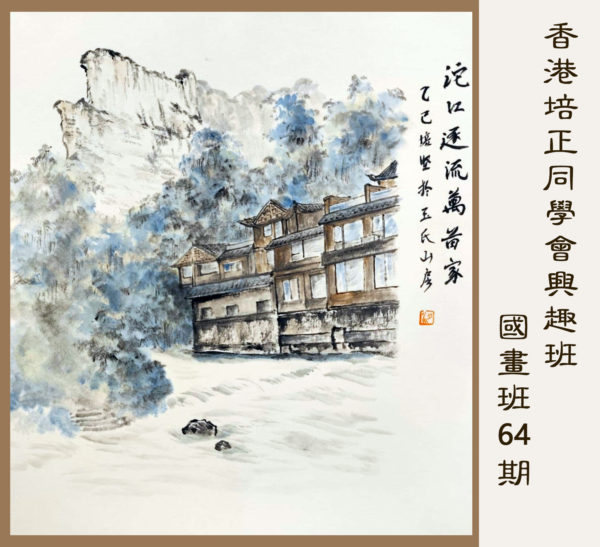 香港培正同學會興趣班
國畫班64期
沱江逐流萬苗家
乙巳培堅於王氏山房